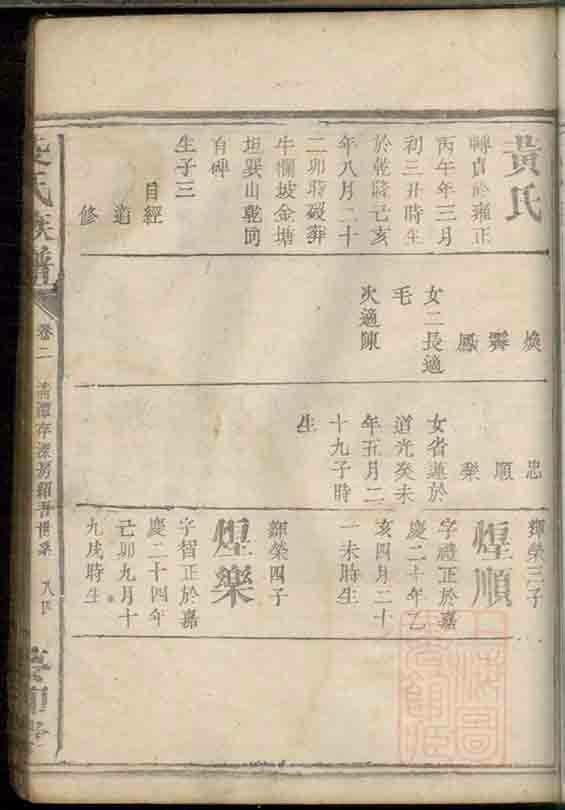 黃氏
轉貞於雍正
丙午年三月
初三丑時生
於乾隆己亥
年八月二十
二卯時歿葬
牛欄坡金塘
坦巽山乾向
有碑
生子三
自經
適
修
煥
鳳
女二長適
毛
次適陳
忠
順
樂
女省蓮於
道光癸未
年五月二
十九子時
生
輝榮三子
煌順
字禮正於嘉
慶二十年乙
亥四月二十
一未時生
輝榮四子
煌樂
字習正於嘉
慶二十四年
己卯九月十
九戌時生
氏族譜
卷二
世系
八四